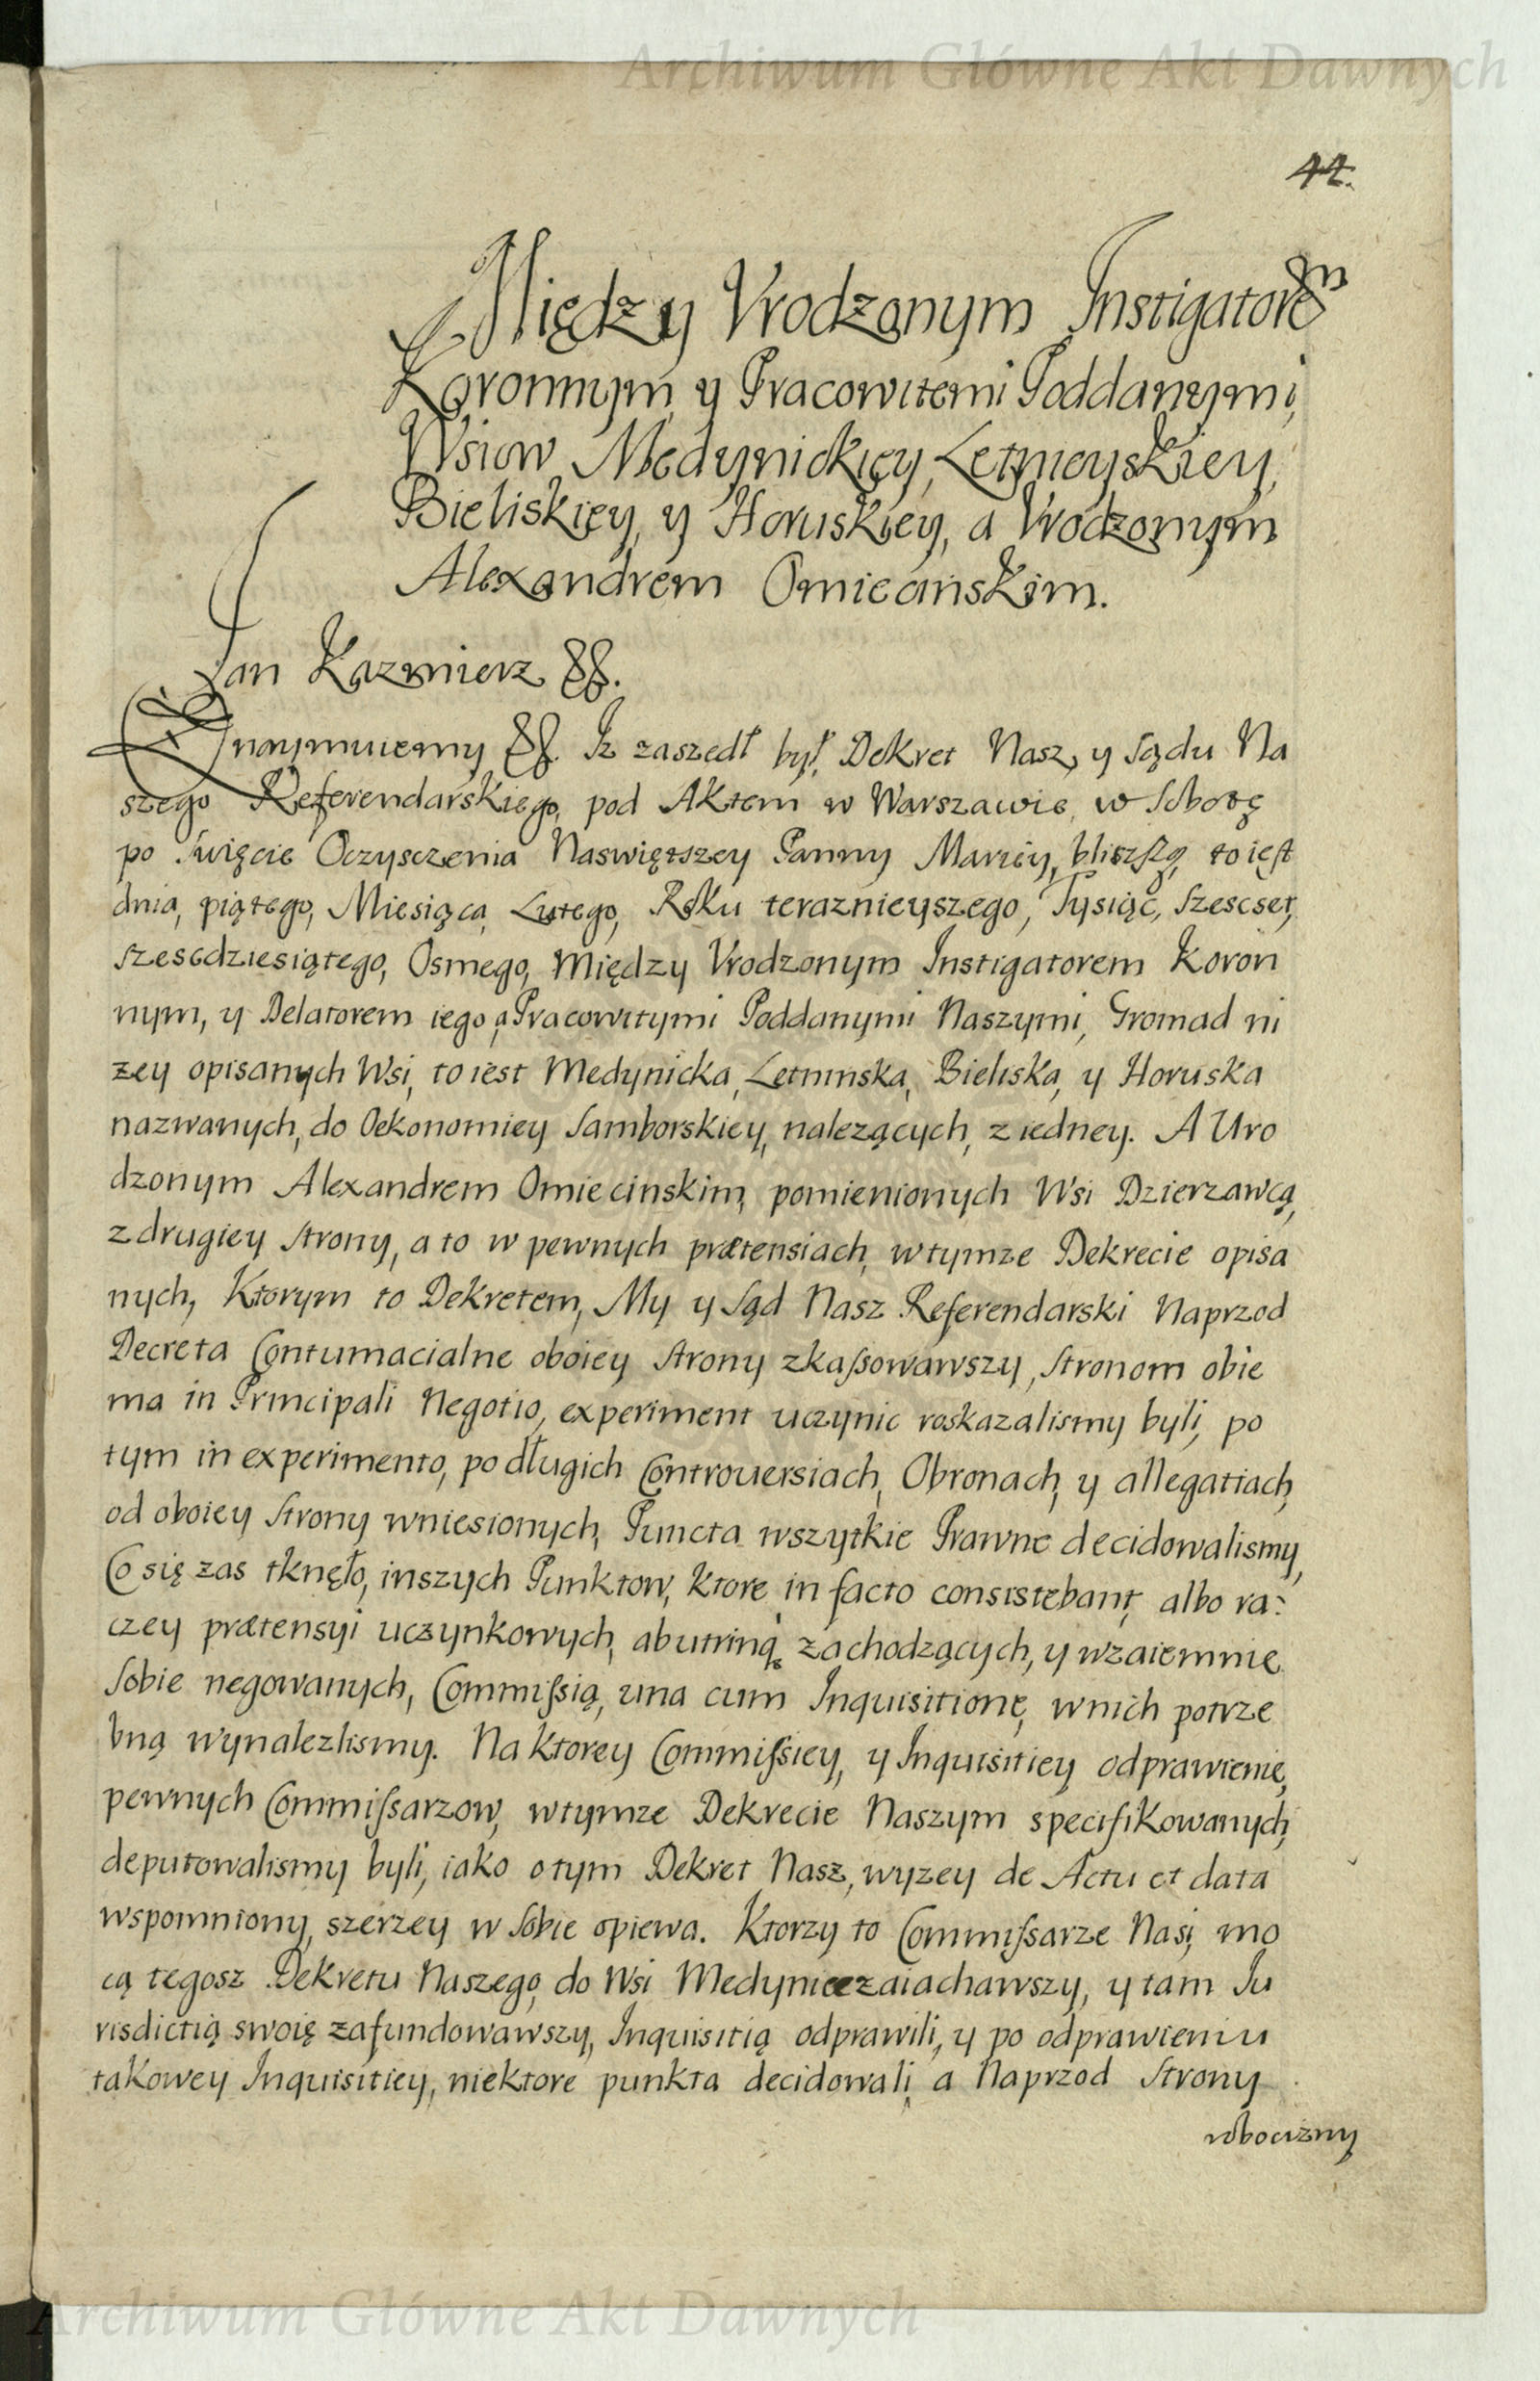 Archiwum Główne Akt Dawnych
44.
Między Vrodzonym Instigatorem
Koronnym, y Pracowitemi Poddanymi,
Wsiow Medynickiey, Letnieyskiey,
Bieliskiey, y Horuskiey, a Vrodzonym
Alexandrem Omiecinskim.
Jan Kazmierz &&.
Oznaymuiemy &&. Iz zaszedł był, Dekret Nasz, y sądu Na
szego Referendarskiego, pod Aktem w Warszawie, w Sobotę
po święcie Oczysczenia Naswiętszey Panny Mariey, bliszszą, to iest
dnia, piątego, Miesiąca, Lutego, Roku teraznieyszego, Tysiąc, szescset,
szescdziesiątego, Osmego, Między Vrodzonym Instigatorem Koron
nym, y Delatorem iego, a Pracowitymi Poddanymi Naszymi, Gromad ni
zey opisanych Wsi, to iest Medynicka, Letninska, Bieliska, y Horuska
nazwanych, do Oekonomiey Samborskiey, nalezących, z iedney. A Uro
dzonym Alexandrem Omiecinskim, pomienionych Wsi Dzierzawcą,
z drugiey strony, a to w pewnych prætensiach, w tymze Dekrecie opisa
nych, Ktorym to Dekretem, My y Sąd Nasz Referendarski Naprzod
Decreta Contumacialne oboiey strony zkassowawszy, stronom obie
ma in Principali Negotio, experiment uczynic roskazalismy byli, po
tym in experimento, po długich Controuersiach, Obronach, y allegatiach,
od oboiey strony wniesionych, Puncta wszytkie Prawne decidowalismy,
Co się zas tknęło, inszych Punktow, ktore in facto consistebant, albo ra:
czey prætensyi uczynkowych, ab utrinq, zachodzących, y wzaiemnie
sobie negowanych, Commissią, una cum Inquisitione, w nich potrze
bną wynalezlismy. Na ktorey Commissiey, y Inquisitiey odprawienie,
pewnych Commissarzow, w tymze Dekrecie Naszym specifikowanych,
deputowalismy byli, iako o tym Dekret Nasz, wyzey de Actu et data
wspomniony, szerzey w sobie opiewa. Ktorzy to Commissarze Nasi, mo
cą tegosz Dekretu Naszego, do Wsi Medynice zaiachawszy, y tam Ju
risdictią swoię zafundowawszy, Inquisitią odprawili, y po odprawieniu
takowey Inquisitiey, niektore punkta decidowali, a Naprzod strony
robocizny
Archiwum Główne Akt Dawnych